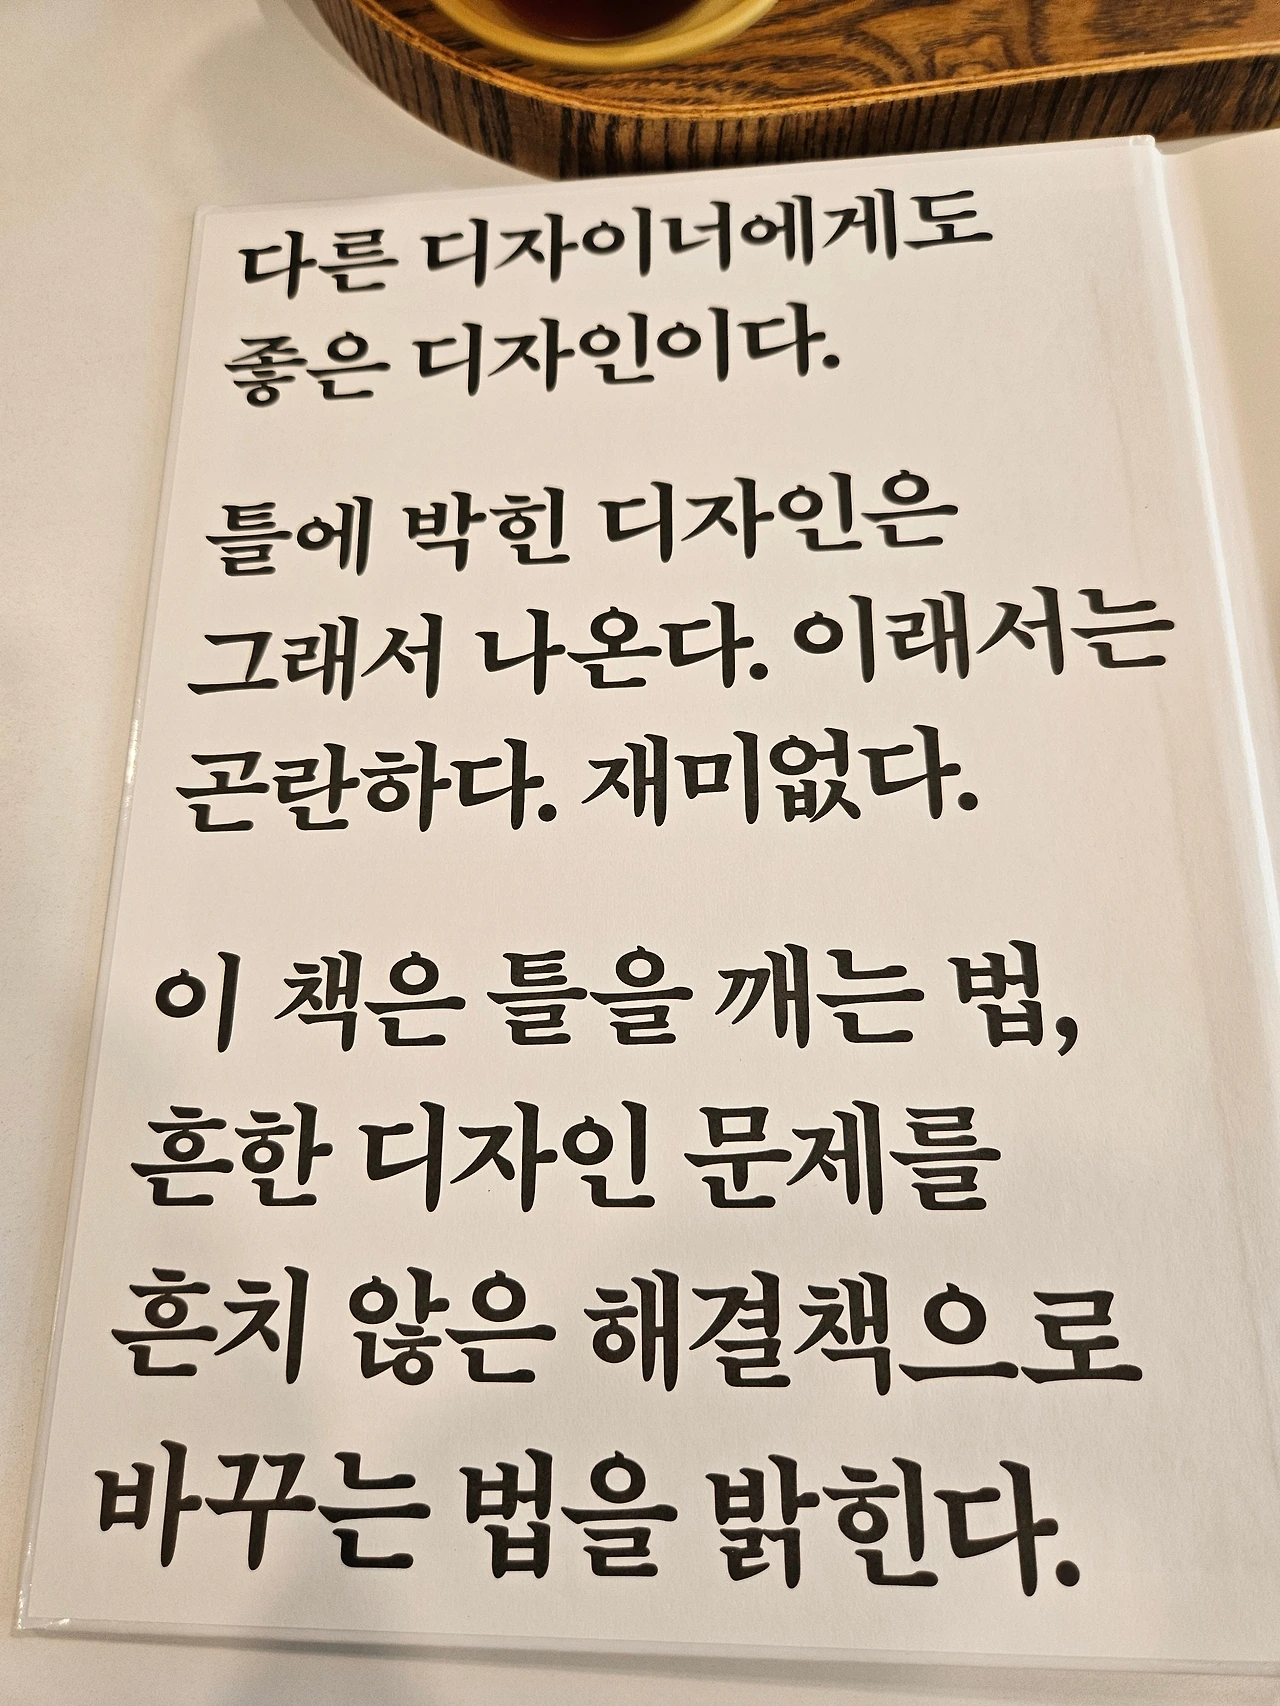 다른 디자이너에게도
좋은 디자인이다.
틀에 박힌 디자인은
그래서 나온다. 이래서는
곤란하다. 재미없다.
이 책은 틀을 깨는 법,
흔한 디자인 문제를
흔치 않은 해결책으로
바꾸는 법을 밝힌다.